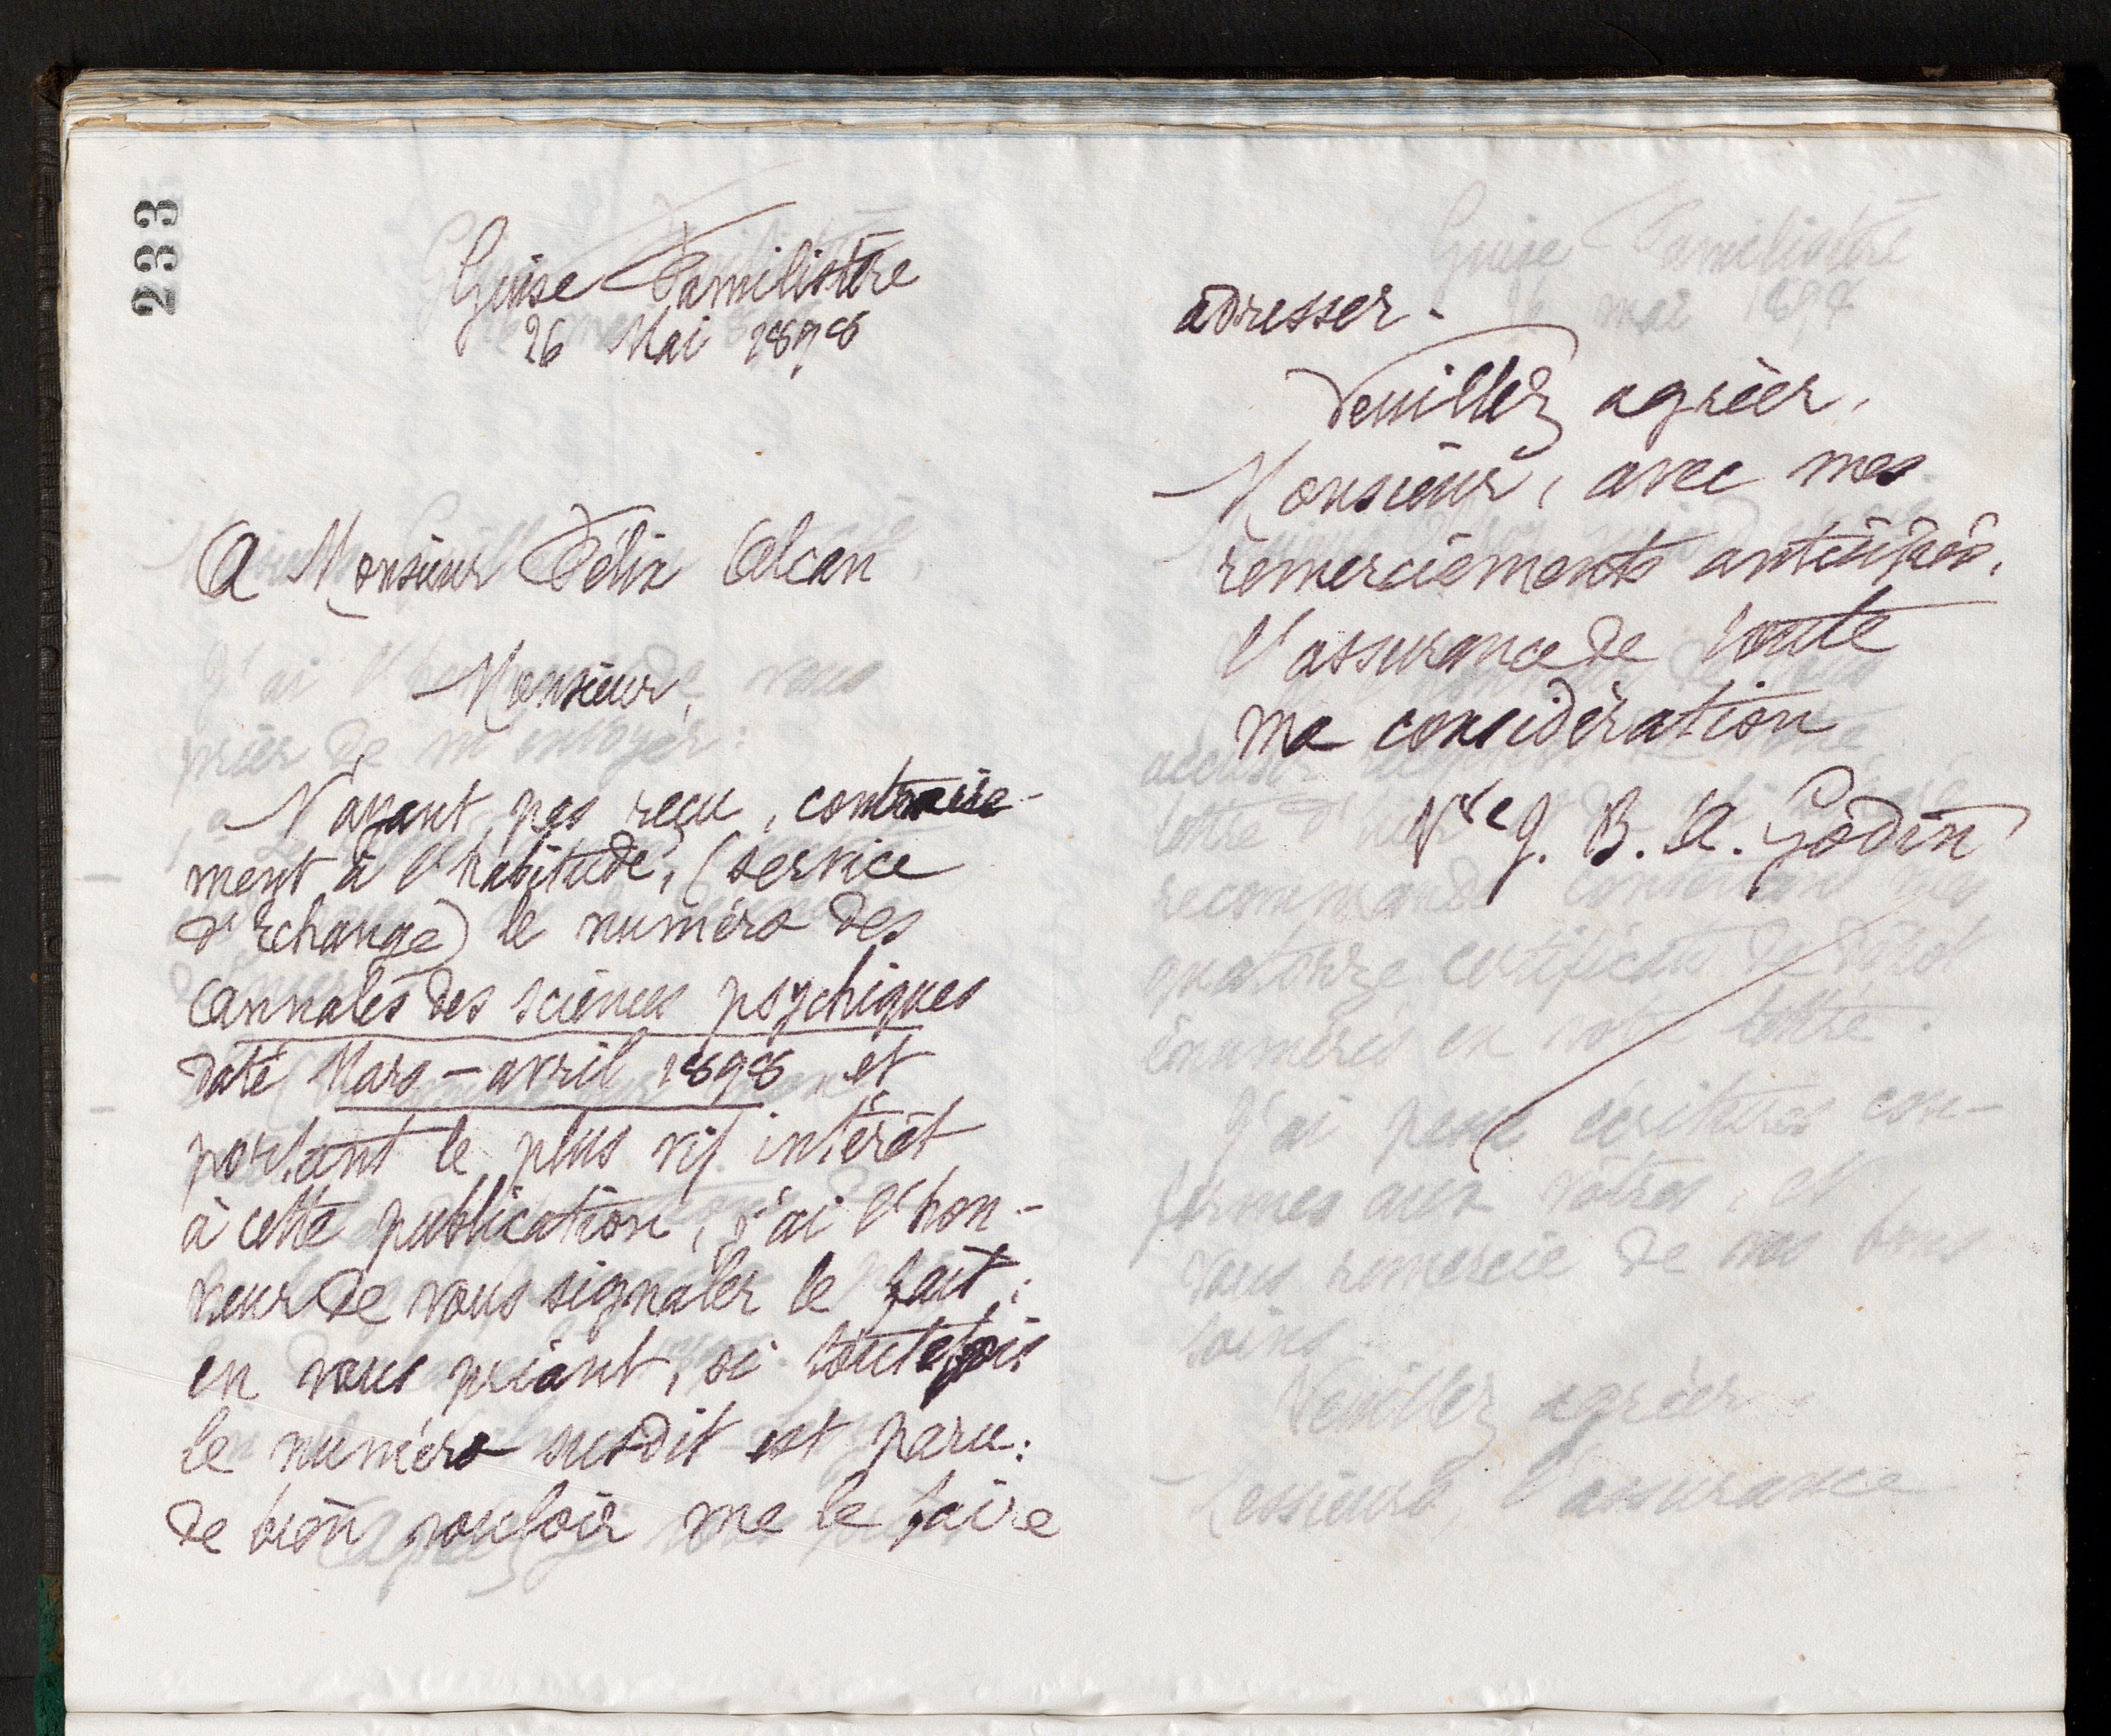 233
Guise Familistère
26 Mai 1898
A Monsieur Félix Alcan
Monsieur,
N'ayant pas reçu, contraire-
ment à l'habitude, (service
d'Echange) le numéro des
Annales des sciences psychiques
daté Mars - avril 1898 et
portant le plus vif intérêt
à cette publication, j'ai l'hon-
neur de vous signaler le fait;
en vous priant, si toutefois
le numéro susdit est paru,
de bien vouloir me le faire
adresser.
Veuillez agréer,
Monsieur, avec mes
remerciements anticipés,
l'assurance de toute
ma considération
Vve J. B. A. Godin